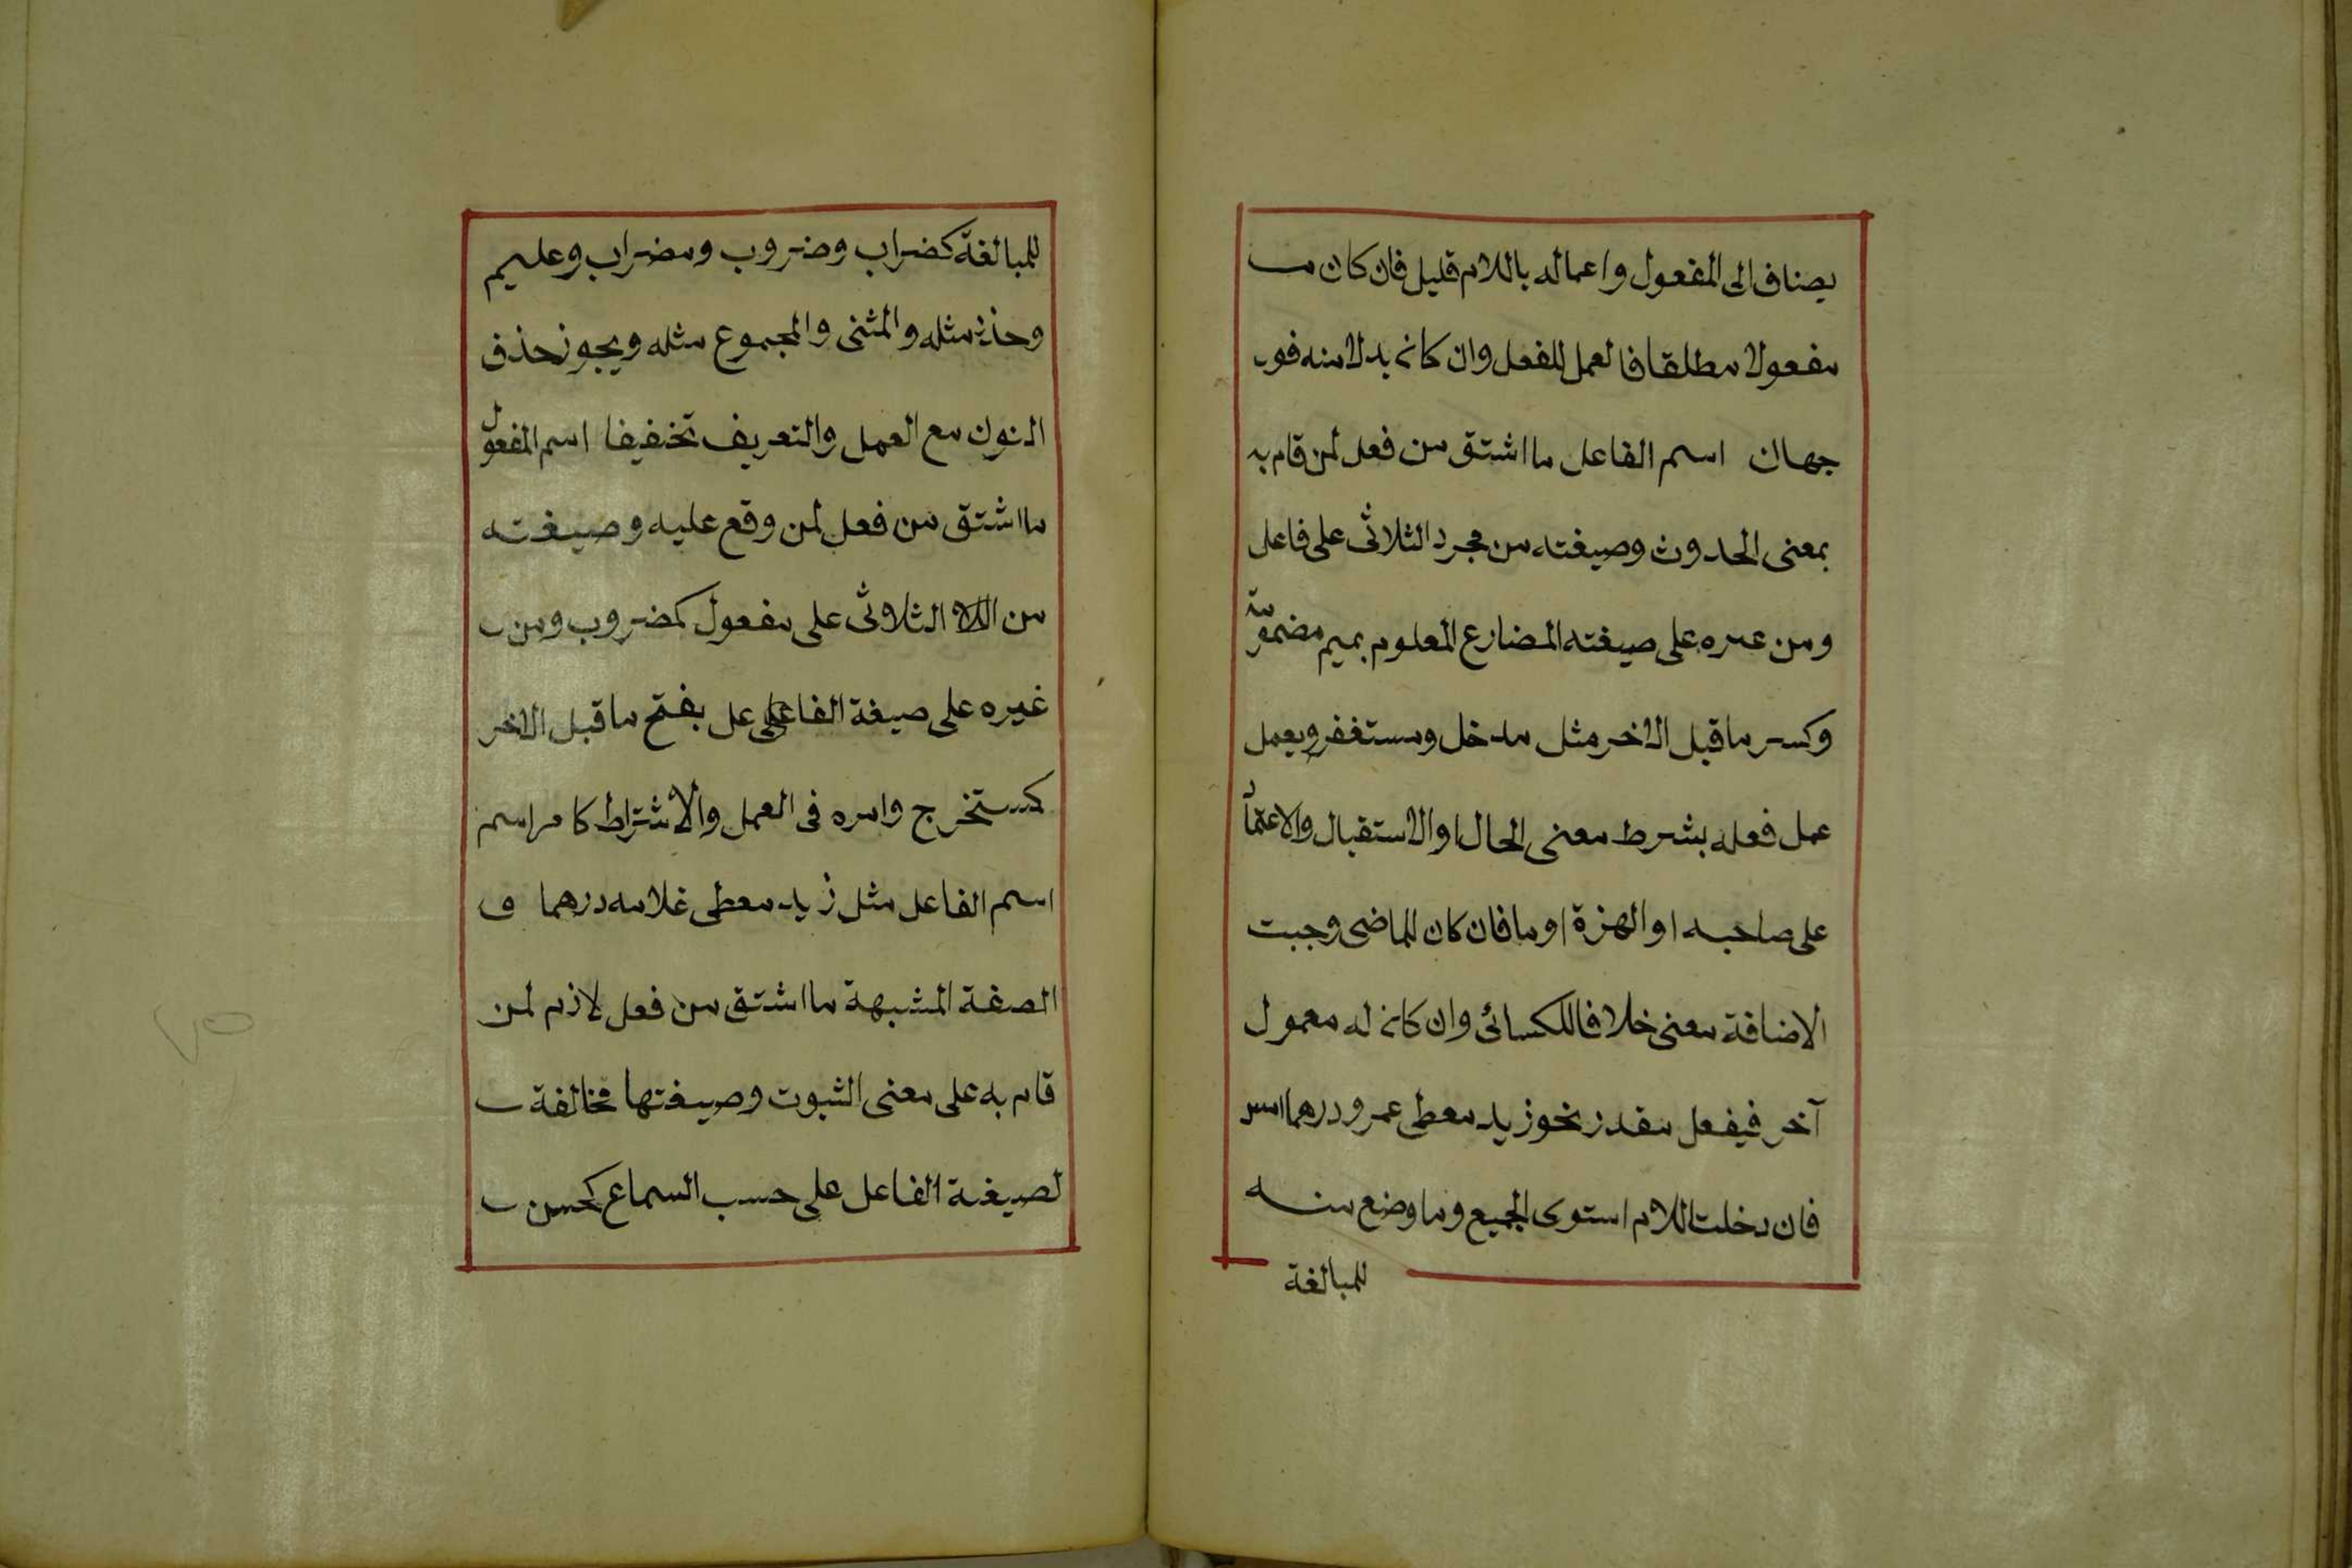 يضاف الى المفعول واعماله باللام قليل فان كان
مفعولا مطلقا فالعمل للفعل وان كان بدلا منه فو
جهان اسم الفاعل ما اشتق من فعل لمن قام به
بمعنى الحدوث وصيغته من مجرد الثلاثى على فاعل
ومن غيره على صيغته المضارع المعلوم بميم مضمومة
وكسر ما قبل الاخر مثل مدخل ومستغفر ويعمل
عمل فعله بشرط معنى الحال او الاستقبال والاعتماد
على صاحبه او الهمزة او ما فان كان للماضى وجبت
الاضافة معنى خلافا للكسائى وان كان له معمول
آخر فيفعل مقدر نحو زيد معطى عمرو درهما امس
فان دخلت اللام استوى الجميع وما وضع منه
للمبالغة
للمبالغة كضراب وضروب ومضراب وعليم
وحذر مثله والمثنى والمجموع مثله ويجوز حذف
النون مع العمل والتعريف تخفيفا اسم المفعول
ما اشتق من فعل لمن وقع عليه وصيغته
من الثلاثى على مفعول كمضروب ومن
غيره على صيغة الفاعل بفتح ما قبل الاخر
كمستخرج وامره فى العمل والأشتراط كامر اسم
اسم الفاعل مثل زيد معطى غلامه درهما و
الصفة المشبهة ما اشتق من فعل لازم لمن
قام به على معنى الثبوت وصيغتها مخالفة
لصيغة الفاعل على حسب السماع كحسن